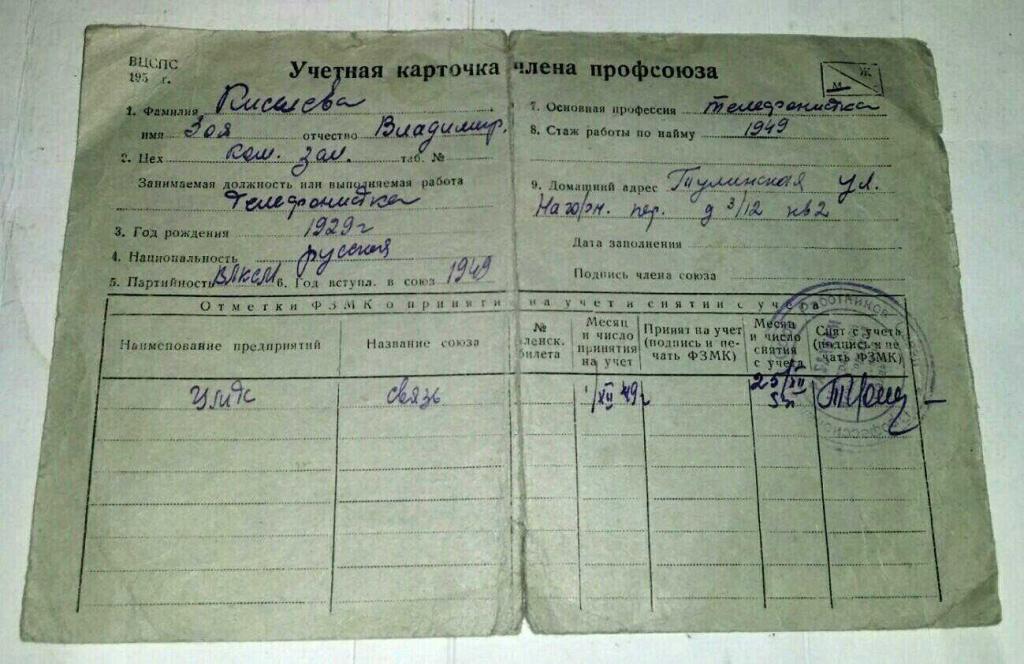 ВЦСПС
195 г.
Учетная карточка члена профсоюза
М Ж
1. Фамилия Киселева
имя Зоя отчество Владимир.
2. Цех ком. зал. таб. №
Занимаемая должность или выполняемая работа
телефонистка
3. Год рождения 1929 г
4. Национальность русская
5. Партийность ВЛКСМ 6. Год вступл. в союз 1949
7. Основная профессия телефонистка
8. Стаж работы по найму 1949
9. Домашний адрес ул.
Нагорн. пер. д 3/12 кв 2
Дата заполнения
Подпись члена союза
Отметки ФЗМК о принятии на учет и снятии с учета
Наименование предприятий
Название союза
№ членск. билета
Месяц и число принятия на учет
Принят на учет (подпись и печать ФЗМК)
Месяц и число снятия с учета
Снят с учета (подпись и печать ФЗМК)
связь
XII 49 г
25/XII
РАБОТНИКОВ